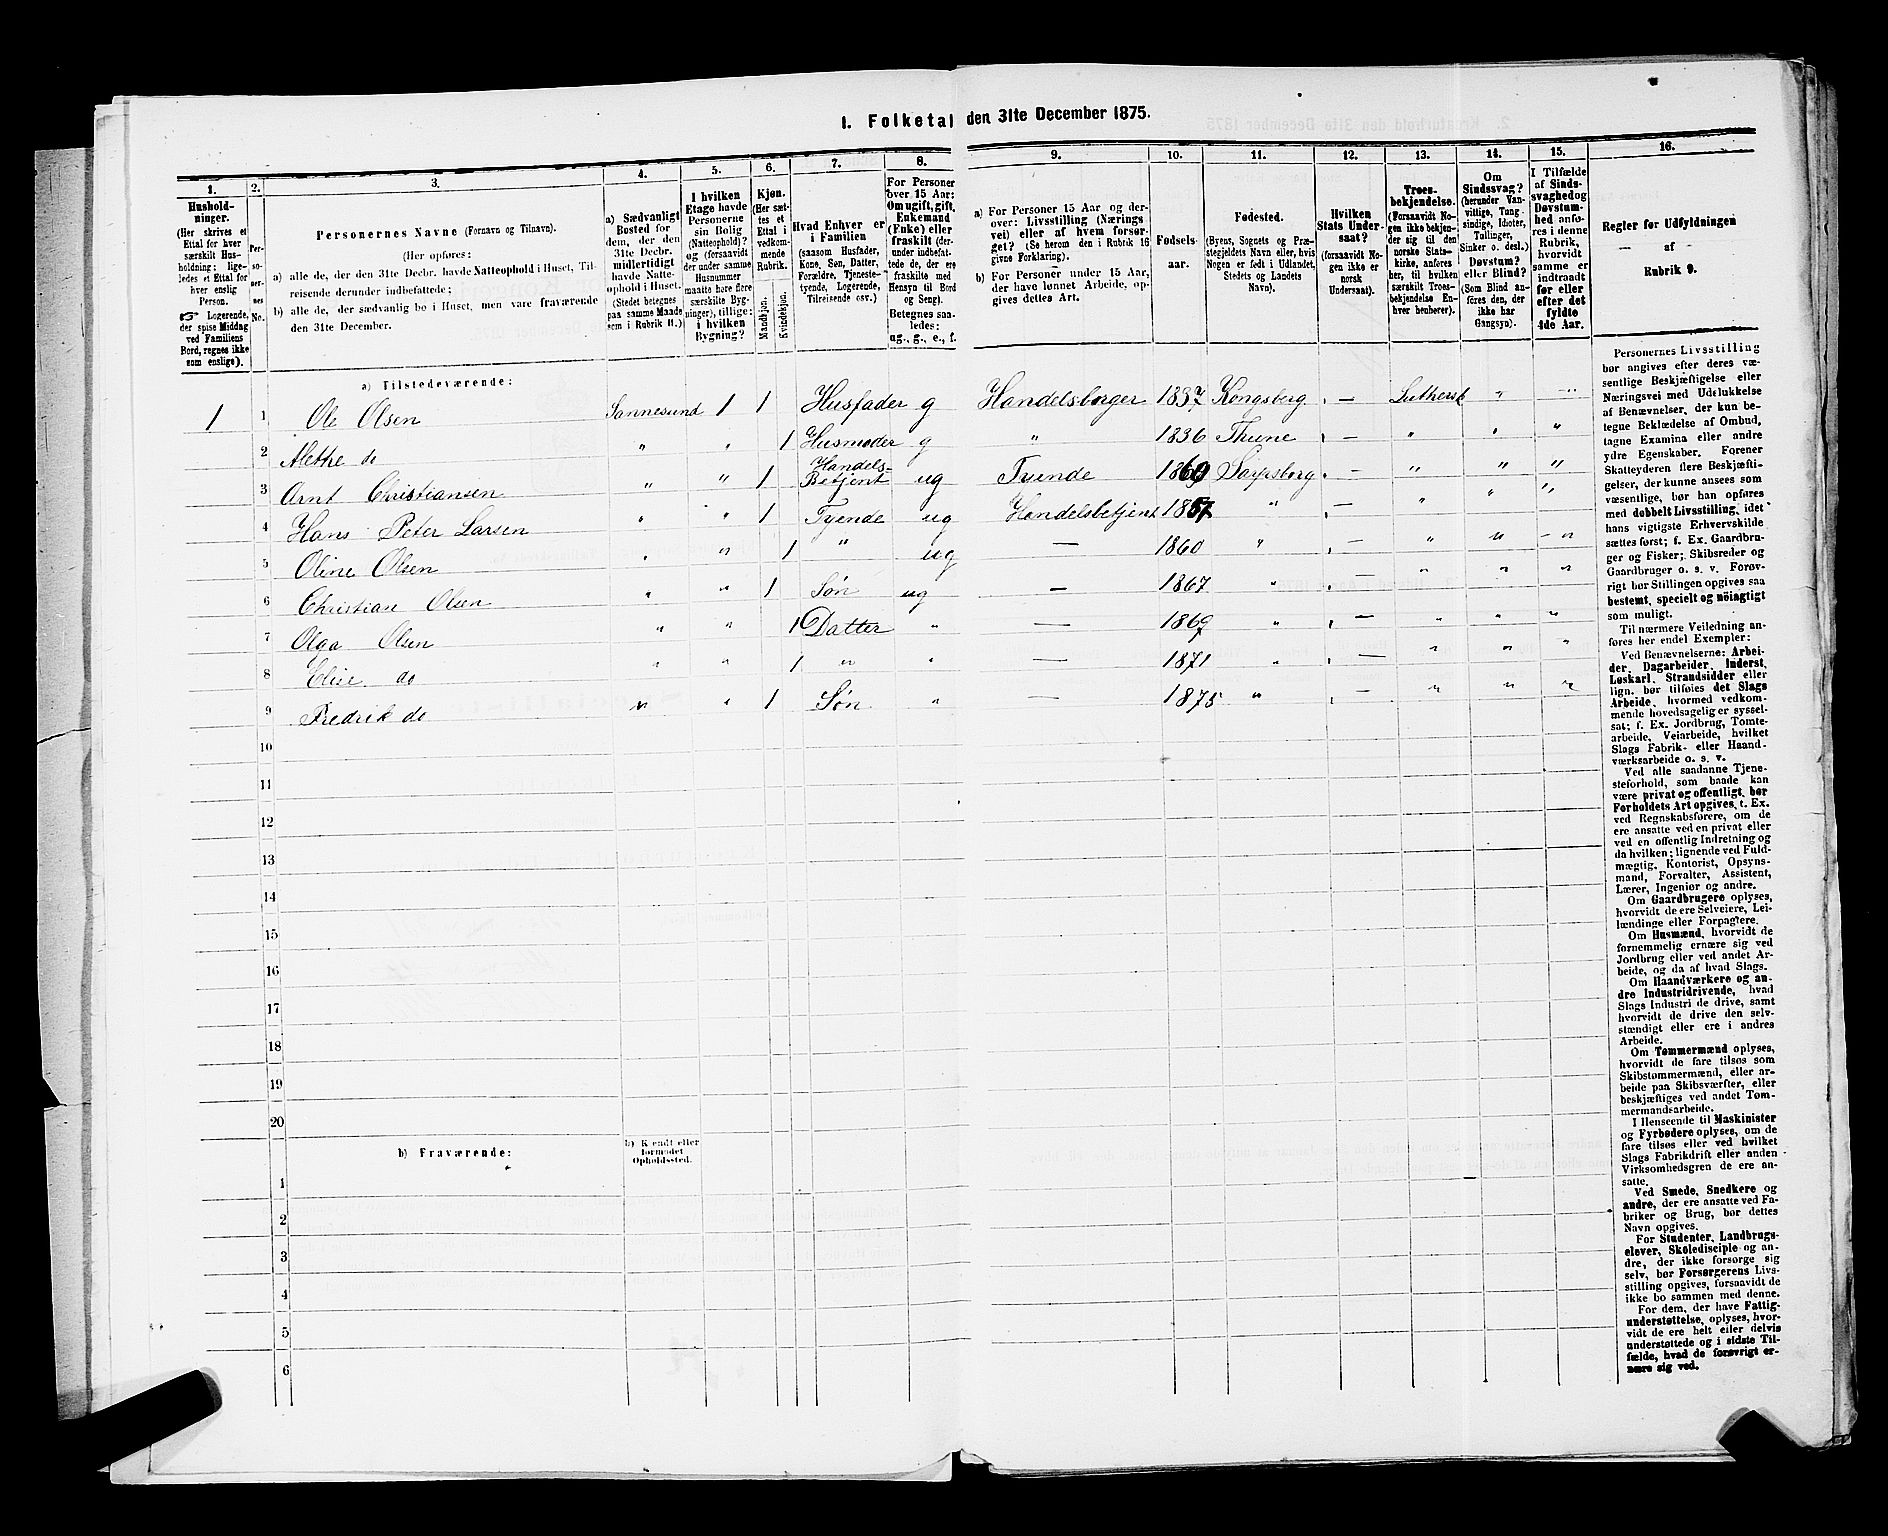 1. Folketal den 31te December 1875.
1. 2. 3. 4. 5. 6. 7. 8. 9. 10. 11. 12. 13. 14. 15. 16.
Hushold-
ninger.
(Her skrives et
Ettal for hver
særskilt Hus-
holdning; lige-
ledes et Ettal for
hver enslig
Person.
☞ Logerende,
der spise Middag
ved Familiens
Bord, regnes ikke
som enslige).
Per-
so-
ner-
nes
No.
Personernes Navne (Fornavn og Tilnavn).
(Her opføres:
a) alle de, der den 31te Decbr. havde Natteophold i Huset, Til-
reisende derunder indbefattede;
b) alle de, der sædvanlig bo i Huset, men vare fraværende
den 31te December.
a) Sædvanligt
Bosted for
dem, der den
31te Decbr.
midlertidigt
havde Natte-
ophold i Huset.
(Stedet betegnes
paa samme Maade
som i Rubrik 11.)
I hvilken
Etage havde
Personerne
sin Bolig
(Natteophold)?
og (forsaavidt
der under samme
Husnummer
maatte høre flere
særskilte Byg-
ninger), tillige:
i hvilken
Bygning?
Kjøn.
(Her sæt-
tes et
Ettal i
vedkom-
mende
Rubrik.
Mandkjøn.
Kvindekjøn.
Hvad Enhver er
i Familien
(saasom Husfader,
Kone, Søn, Datter,
Forældre, Tjeneste-
tyende, Logerende,
Tilreisende osv.)
For Personer
over 15 Aar:
Om ugift, gift,
Enkemand
(Enke) eller
fraskilt (der-
under indbefat-
tede de, der ere
fraskilte med
Hensyn til Bord
og Seng).
Betegnes saa-
ledes:
ug., g., e., f.
a) For Personer 15 Aar og der-
over: Livsstilling (Nærings
vei) eller af hvem forsør-
get? (Se herom den i Rubrik 16
givne Forklaring).
b) For Personer under 15 Aar,
der have lønnet Arbeide, op-
gives dettes Art.
Fødsels-
aar.
Fødested.
(Byens, Sognets og Præ-
stegjeldets Navn eller, hvis
Nogen er født i Udlandet,
Stedets og Landets
Navn).
Hvilken
Stats Under-
saat?
(forsaavidt No-
gen ikke er
norsk
Undersaat).
Troes-
bekjendelse.
(Forsaavidt No-
gen ikke bekjen-
der sig til den
norske Stats-
kirke, anføres
her, til hvilken
særskilt Troes-
bekjendelse En-
hver henhører).
Om
Sindssvag?
(herunder Van-
vittige, Tung-
sindige, Idioter,
Tullinger,
Sinker o. desl.)
Døvstum?
eller Blind?
(Som Blind an-
føres den, der
ikke har
Gangsyn).
I Tilfælde
af Sinds-
svaghed og
Døvstum-
hed anfø-
res i denne
Rubrik,
hvorvidt
samme er
indtraadt
før eller
efter det
fyldte
4de Aar.
Regler for Udfyldningen
af
Rubrik 9.
a) Tilstedeværende:
1 1 Ole Olsen Sannesund 1 1 Husfader g Handelsborger 1837 Kongsberg — Luthersk " — "
2 Alethe do " " 1 Husmoder g " 1836 Thune — " " "
3 Arnt Christiansen " " 1 Handels-
Betjent ug Tyende 1860 Sarpsborg — " " "
4 Hans Peter Larsen " " 1 Tyende ug Handelsbetjent 1857 " — " " "
5 Oline Olsen " " 1 " ug — 1860 " — " " "
6 Christian Olsen " " 1 Søn ug — 1867 " — " " "
7 Olga Olsen " " 1 Datter " — 1869 " — " " "
8 Elise do " " 1 " " — 1871 " — " " "
9 Fredrik do " " 1 Søn " — 1875 " — " " "
10
11
12
13
14
15
16
17
18
19
20
b) Fraværende:
b) Kjendt eller
formodet
Opholdssted.
1
2
3
4
5
6
Personernes Livsstilling
bør angives efter deres væ-
sentlige Beskjæftigelse eller
Næringsvei med Udelukkelse
af Benævnelser, der kun be-
tegne Beklædelse af Ombud,
tagne Examina eller andre
ydre Egenskaber. Forener
Skatteyderen flere Beskjæfti-
gelser, der kunne ansees som
væsentlige, bør han opføres
med dobbelt Livsstilling, idet
hans vigtigste Erhvervskilde
sættes først; f. Ex. Gaardbru-
ger og Fisker; Skibsreder og
Gaardbruger o. s. v. Forøv-
rigt bør Stillingen opgives saa
bestemt, specielt og nøiagtigt
som muligt.
Til nærmere Veiledning an-
føres her endel Exempler:
Ved Benævnelserne: Arbei-
der, Dagarbeider, Inderst,
Løskarl, Strandsidder eller
lign. bør tilføies det Slags
Arbeide, hvormed vedkom-
mende hovedsagelig er syssel-
sat; f. Ex. Jordbrug, Tomte-
arbeide, Veiarbeide, hvilket
Slags Fabrik- eller Haand-
værksarbeide o. s. v.
Ved alle saadanne Tjene-
steforhold, som baade kan
være privat og offentligt, bør
Forholdets Art opgives, t. Ex.
ved Regnskabsførere, om de
ere ansatte ved en privat eller
ved en offentlig Indretning og
da hvilken; lignende ved Fuld-
mægtig, Kontorist, Opsyns-
mand, Forvalter, Assistent,
Lærer, Ingeniør og andre.
Om Gaardbrugere oplyses,
hvorvidt de ere Selveiere, Lei-
lændinge eller Forpagtere.
Om Husmænd, hvorvidt de
fornemmelig ernære sig ved
Jordbrug eller ved andet Ar-
beide, og da af hvad Slags.
Om Haandværkere og an-
dre Industridrivende, hvad
Slags Industri de drive, samt
hvorvidt de drive den selv-
stændigt eller ere i andres
Arbeide.
Om Tømmermænd oplyses,
hvorvidt de fare tilsøs som
Skibstømmermænd, eller ar-
beide paa Skibsværfter, eller
beskjæftiges ved andet Tøm-
mermandsarbeide.
I Henseende til Maskinister
og Fyrbødere oplyses, om de
fare tilsøs eller ved hvilket
Slags Fabrikdrift eller anden
Virksomhedsgren de ere an-
satte.
Ved Smede, Snedkere og
andre, der ere ansatte ved Fa-
briker og Brug, bør dettes
Navn opgives.
For Studenter, Landbrugs-
elever, Skoledisciple og an-
dre, der ikke forsørge sig
selv, bør Forsørgerens Livs-
stilling opgives, forsaavidt de
ikke bo sammen med denne.
For dem, der have Fattig-
understøttelse, oplyses, hvor-
vidt de ere helt eller delvis
understøttede og i sidste Til-
fælde, hvad de forøvrigt er-
nære sig ved.